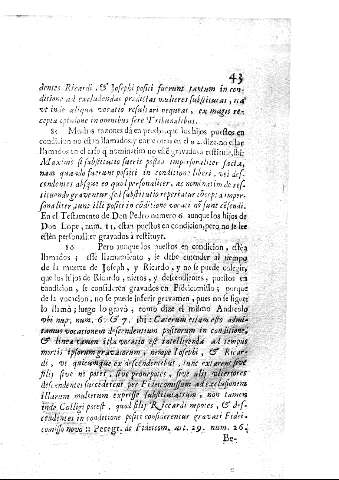 43
dentes Ricardi, & Josephi positi fuerunt tantum in con-
ditione ad excludendas prædictas mulieres substitutas, ita
ut inde aliqua vocatio resultari nequeat, ex magis re-
cepta opinione in omnibus fere Tribunalibus.
85 Muchas razones dà en prueba, que los hijos puestos en
condicion no están llamados, y entre otras en el n. 2. dize no estar
llamados en el caso q̃ nominatim no esté gravados à restituir, ibi:
Maximè si substitutio fuerit postea impersonaliter facta,
nam quando fuerunt positi in conditione liberi, vel des-
cendentes absque eo quod personaliter, ac nominatim de res-
tituendo graventur, sed substitutio reperitur concepta imper-
sonaliter, tunc illi positi in conditione vocati non sunt censendi.
En el Testamento de Don Pedro numero 6. aunque los hijos de
Don Lope, num. 11, estan puestos en condicion, pero no se lee
estèn personaliter gravados à restituir.
86 Pero aunque los puestos en condicion, estèn
llamados; este llamamiento, se debe entender al tiempo
de la muerte de Joseph, y Ricardo, y no se puede colegir,
que los hijos de Ricardo, nietos, y descendientes, puestos en
condicion, se consideren gravados en Fideicomisso; porque
de la vocacion, no se puede inferir gravamen, pues no se sigue
lo llamò; luego lo gravò; como dize el mismo Andreolo
ubi sup. num. 6. & 7. ibi: Cæterum etiam esto admi-
tamus vocationem descendentium positorum in conditione,
& linea tamen ista vocatio est intelligenda ad tempus
mortis ipsorum gravatorum, nempe Josephi, & Ricar-
di, ut quicumque ex descendentibus, tunc extarent sive
filii sive nepotes, sive pronepotes, sive aliis ulteriores
descendentes succederent per Fideicomissum ad exclusionem
illarum mulierum expresse substitutarum, non tamen
inde Colligi potest, quod filii Riccardi nepotes, & des-
cendentes in conditione positi considerentur gravati Fidei-
comisso novo :: Peregr. de Fideicom. art. 29. num. 26.
Be-